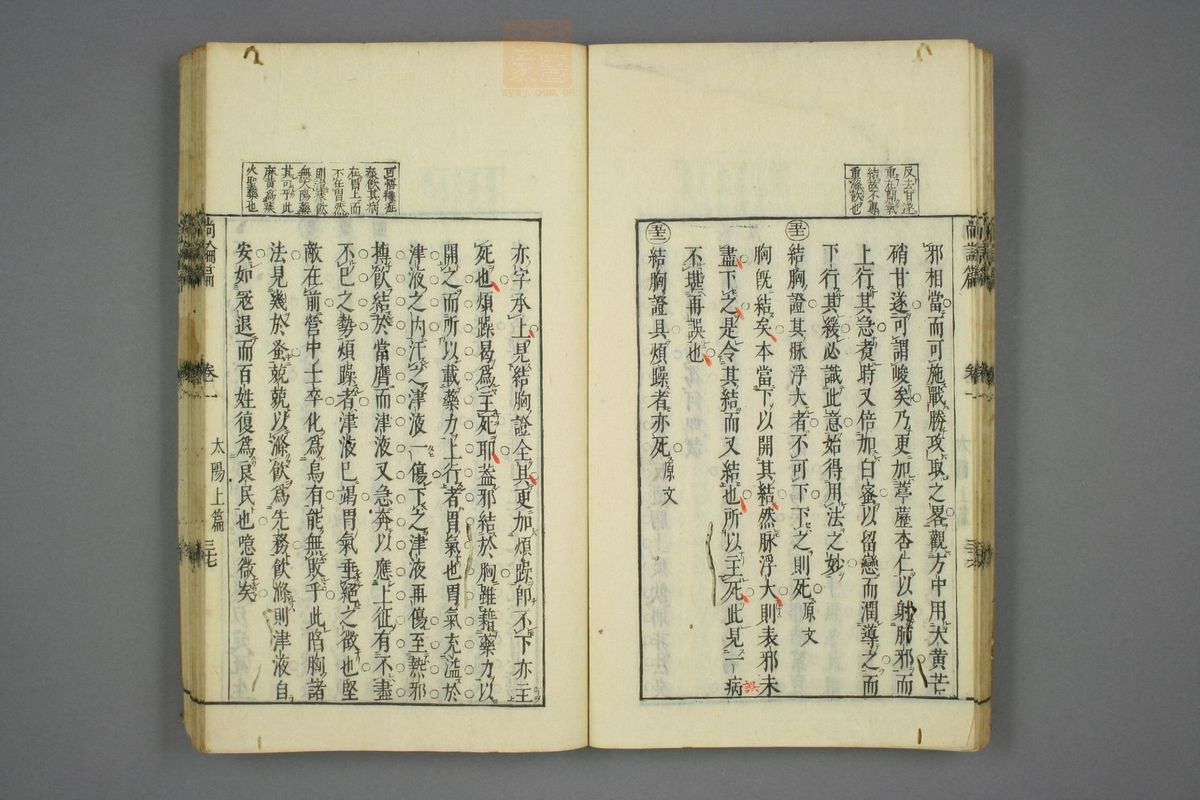 反去甘遂
重在胸藏
結故不專
重滌飲也
邪相當而可施戰勝攻取之畧觀方中用大黃芒
硝甘遂可謂峻矣乃更加葶藶杏仁以射肺邪而
上行其急煑時又倍加白蜜以留戀而潤導之而
下行其緩必識此意始得用法之妙
結胸證其脉浮大者不可下下之則死 原文
胸旣結矣本當下以開其結然脉浮大則表邪未
盡下之是令其結而又結也所以主死此見一病
不堪再誤也
誤
結胸證具煩躁者亦死 原文
尚論篇 卷一
可悟種症
泰飲其病
在胃上而
不在胃然
則滌飲
無太陽藥
其可乎此
麻黃為滌
火聖藥也
亦字承上見結胸證全具更加煩躁卽不下亦主
死也煩躁曷爲主死耶葢邪結於胸雖藉藥力以
開之而所以載藥力上行者胃氣也胃氣充溢於
津液之內汗之津液一傷下之津液再傷至熱邪
摶飲結於當膺而津液又急奔以應上征有不盡
不已之勢煩躁者津液已竭胃氣垂絕之徵也堅
敵在前營中士卒化爲烏有能無敗乎此陷胸諸
法見幾於蚤兢兢以滌飲爲先務飲滌則津液自
安如冦退而百姓復爲良民也噫微矣
尚論篇 卷一 太陽上篇 三七